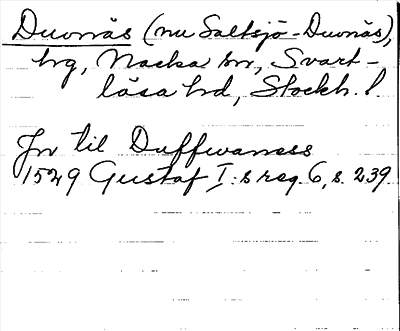 Duvnäs (nu Saltsjö-Duvnäs),
hg, Nacka sn, Svart-
lösa hd, Stockh. l.
Jn til Duffwanæss
1529 Gustaf I:s reg. 6, s. 239.